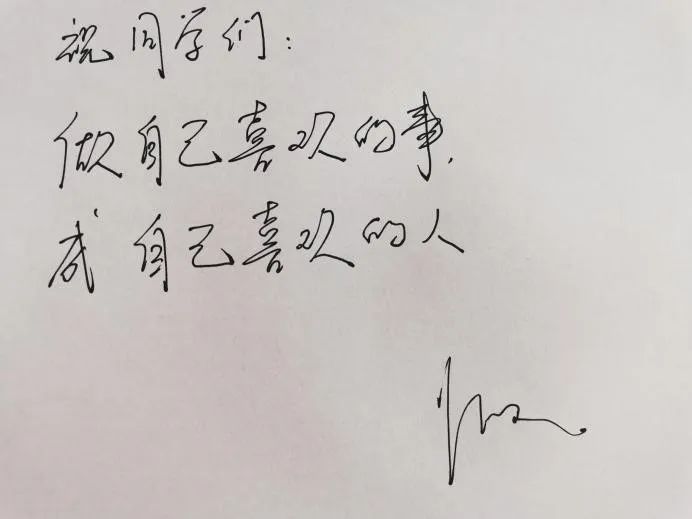 祝同学们：
做自己喜欢的事，
成自己喜欢的人